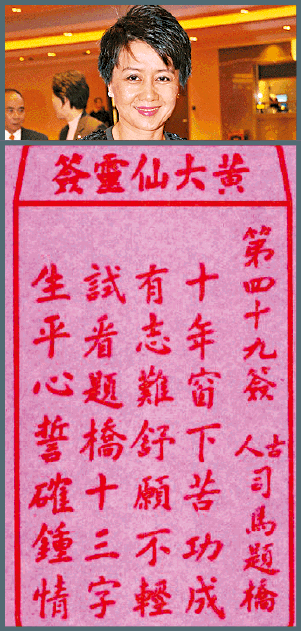 黃大仙靈簽
第四十九簽 古人司馬題橋
十年窗下苦功成
有志難舒願不輕
試看題橋十三字
生平心誓確鍾情